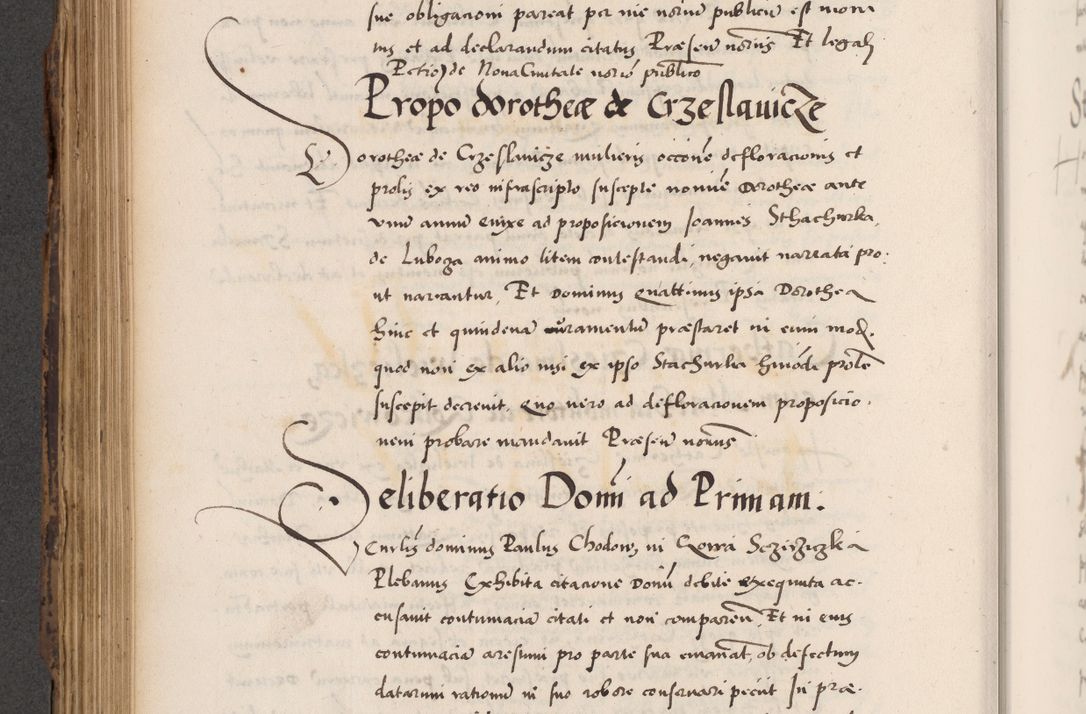 sue obligacioni pareat per me notariū publicū est moni
tus et ad declarandum citatus Præsen notriis Et legalj
Petro de Nova Civitate notrio publico
Propō dorotheæ de Crzeslauicze
Dorotheæ de Crzeslauicze mulieris occōne defloracionis et
prolis ex reo infrascripto suscepte nomine Dorotheæ ante
vnū annū enixe ad proposicionem Joannis Sthachurka
de Luboga animo litem contestandi, negauit narrata pro
ut narrantur, Et Dominus Quattinus ipsa Dorothea
hinc et quindena iuramentū præstaret in eum mod.
quod non ex alio nisi ex ipso Stachurka hmōdi prolē
suscepit decreuit, Quo vero ad defloracionem proposicio
nem probare mandauit Præsen notriis
Deliberatio Domī ad Primam.
Venrlis dominus Paulus Chodow in
Plebanus Exhibita citacione Domī debite exequuta ac-
cusauit contumaciā citati et non comparen, Et in eius
contumaciā arestum pro parte sua emanat, ob defectum
datarum rationum in suo robore conseruari peciit In præ-